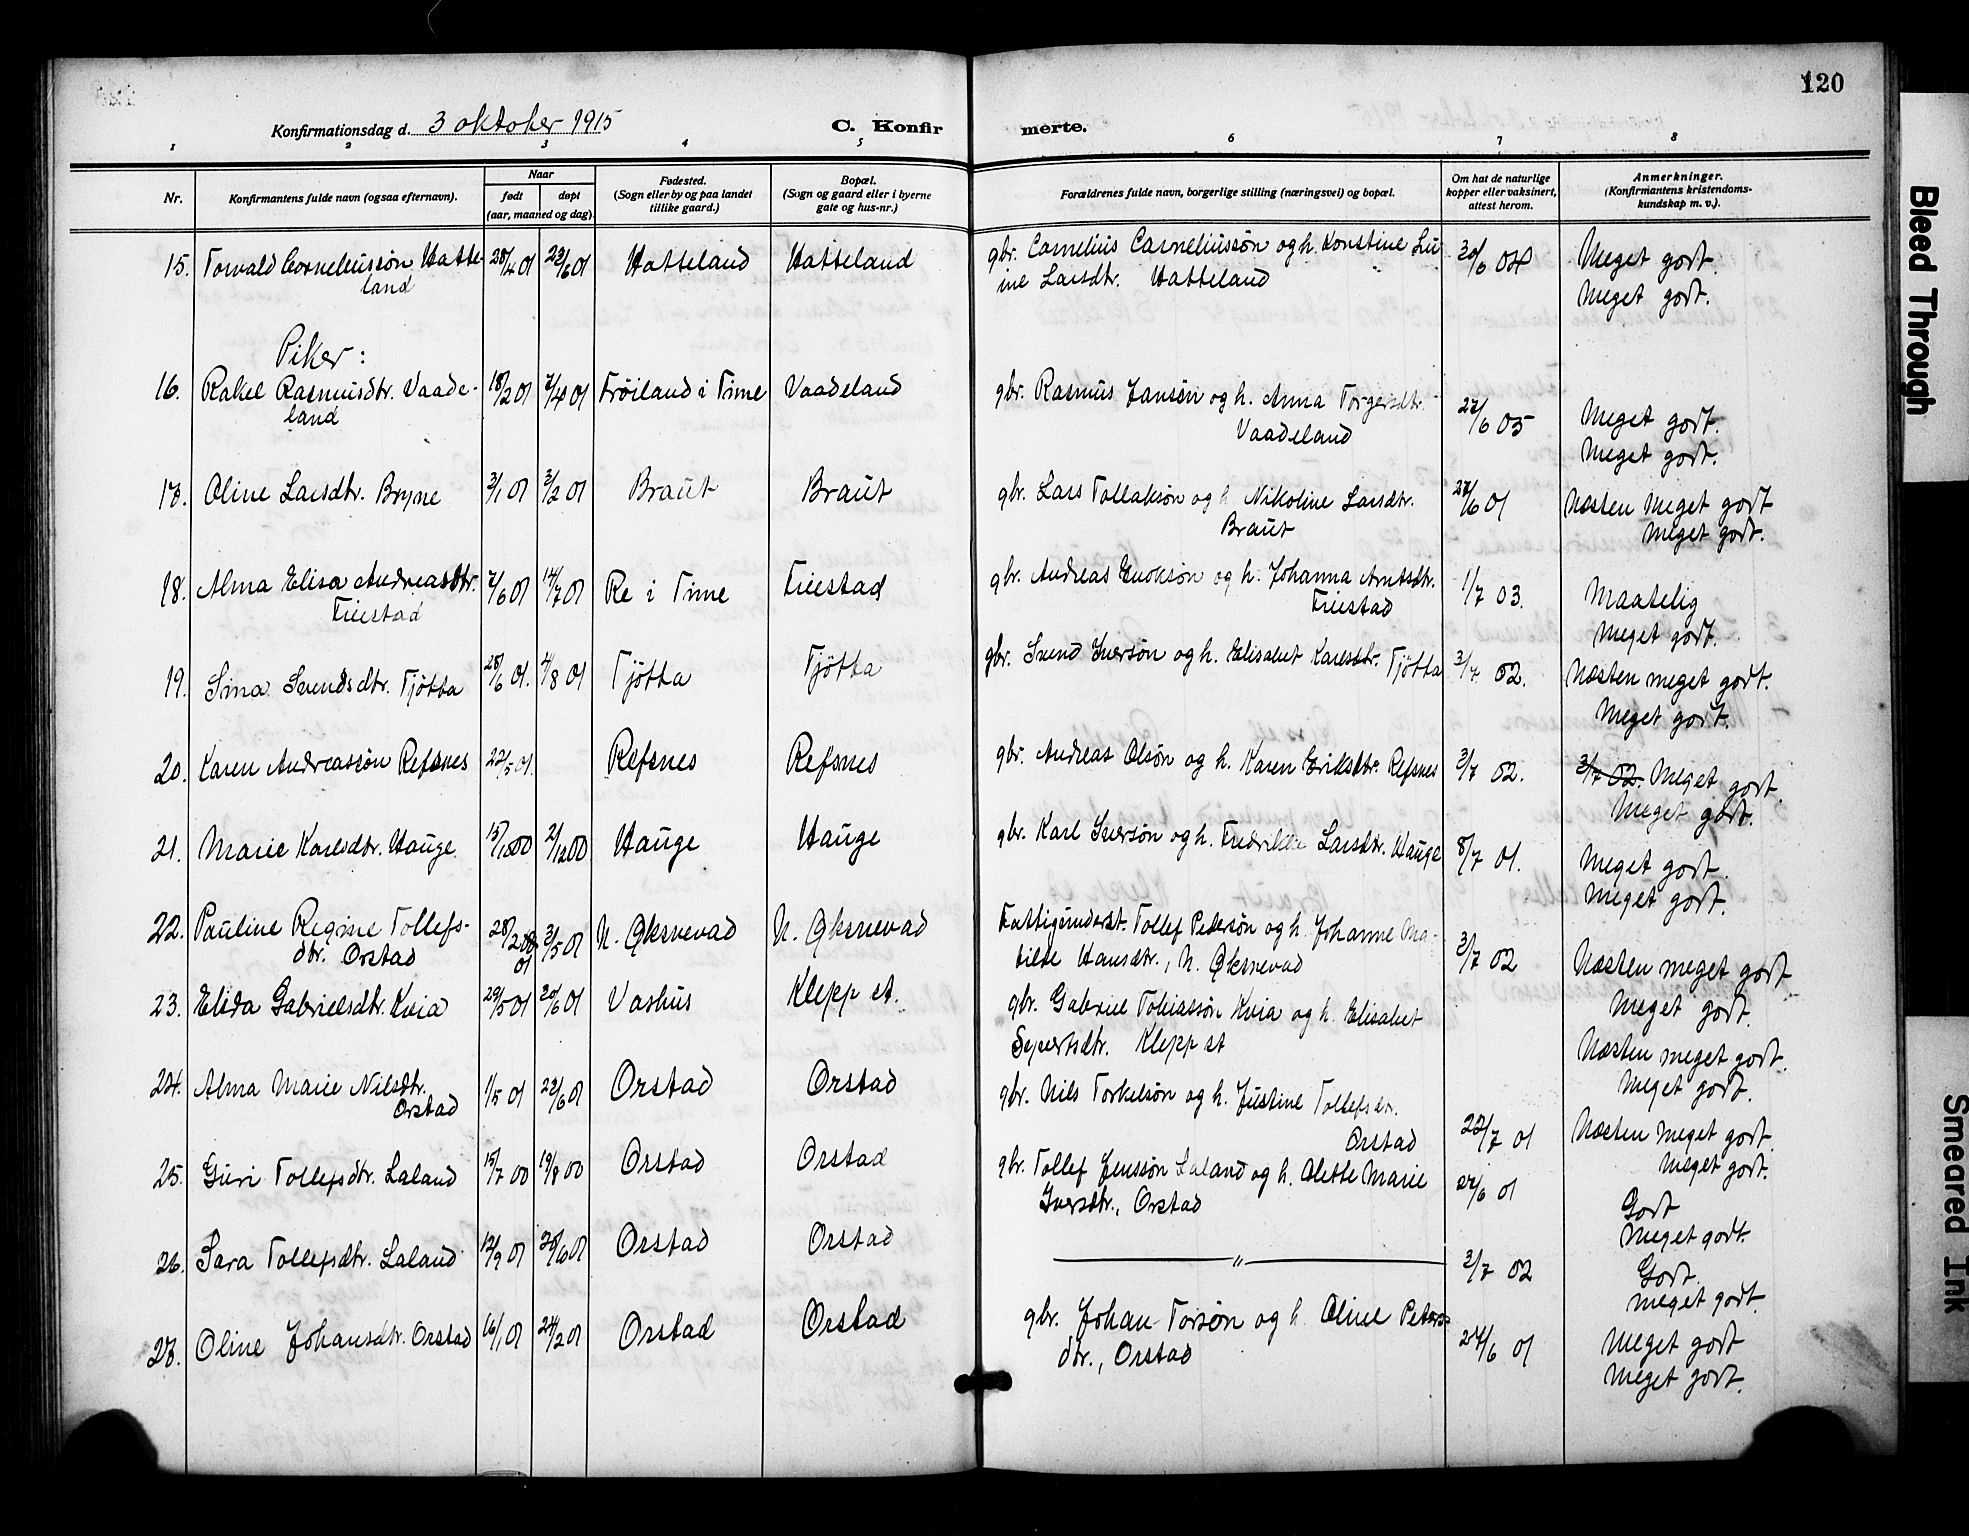 120
Konfirmationsdag d. 3 oktober 1915
C. Konfir
merte.
1 2 3 4 5 6 7 8
Nr.
Konfirmantens fulde navn (ogsaa efternavn).
Naar
født
døpt
(aar, maaned og dag)
Fødested.
(Sogn eller by og paa landet
tillike gaard.)
Bopæl.
(Sogn og gaard eller i byerne
gate og hus-nr.)
Forældrenes fulde navn, borgerlige stilling (næringsvei) og bopæl.
Om hat de naturlige
kopper eller vaksinert,
attest herom.
Anmerkninger.
(Konfirmantens kristendoms-
kundskap m. v.).
15. Torvald Corneliussøn Hatte- 28/4 01 23/6 01 Hatteland Hatteland gbr. Cornelius Corneliussøn og h. Konstine Lu
land
ine Larsdtr. Hatteland
30/6 04 Meget godt.
Meget godt.
Piker:
16. Rakel Rasmusdtr. Vaade- 18/2 01 7/4 01 Frøiland i Time Vaadeland gbr. Rasmus Jansøn og h. Anna Torgersdtr.
land
Vaadeland
27/6 05 Meget godt.
Meget godt.
17. Oline Larsdtr. Bryne 3/1 01 3/2 01 Braut Braut gbr. Lars Tollaksøn og h. Nikoline Larsdtr.
Braut
27/6 01 Næsten Meget godt
Meget godt.
18. Alma Elisa Andreasdtr. 7/6 01 14/7 01 Re i Time Tuestad gbr. Andreas Enoksøn og h. Johanna Arntsdtr.
Tuestad
Tuestad
1/7 03. Maatelig
Meget godt.
19. Sina Svendsdtr. Tjøtta 28/6 01. 4/8 01 Tjøtta Tjøtta gbr. Svend Iversøn og h. Elisabet Karlsdtr. Tjøtta 3/7 02. Næsten meget godt.
Meget godt.
20. Karen Andreassøn Refsnes 22/5 01. Refsnes Refsnes gbr. Andreas Olsøn og h. Karen Eriksdtr. Refsnes 3/7 02. 3/7 02. Meget godt.
Meget godt.
21. Marie Karlsdtr. Hauge 15/10 00 2/12 00 Hauge Hauge gbr. Karl Iversøn og h. Fredrikke Larsdtr. Hauge 8/7 01. Meget godt.
Meget godt.
22. Pauline Regine Tollefs- 28/2 00 3/5 01 N. Øksnevad N. Øksnevad Fattigunderst. Tollef Pedersøn og h. Johanne Ma-
dtr. Orstad 01
tilde Hansdtr., N. Øksnevad
3/7 02 Næsten meget godt
Meget godt.
23. Elida Gabrielsdtr. Kvia 29/5 01 20/6 01 Vashus Klepp st. gbr. Gabriel Tobiassøn Kvia og h. Elisabet
Syvertsdtr. Klepp st
Næsten meget godt.
Meget godt.
24. Alma Marie Nilsdtr. 1/5 01 23/6 01 Orstad Orstad gbr. Nils Torkelsøn og h. Justine Tollefsdtr.
Orstad
Orstad
22/7 01 Næsten meget godt.
Meget godt.
25. Guri Tollefsdtr. Laland 15/7 00 19/8 00 Orstad Orstad gbr. Tollef Jenssøn Laland og h. Olette Marie
Iversdtr., Orstad
27/6 01 Godt
Meget godt.
26. Sara Tollefsdtr. Laland Orstad Orstad — " — 3/7 02 Godt.
Meget godt.
27. Oline Johansdtr. Orstad 16/1 01 24/2 01 Orstad Orstad gbr. Johan Torsøn og h. Oline Peters-
dtr., Orstad
27/6 01 Meget godt
Meget godt.
Bleed Through
Smeared Ink